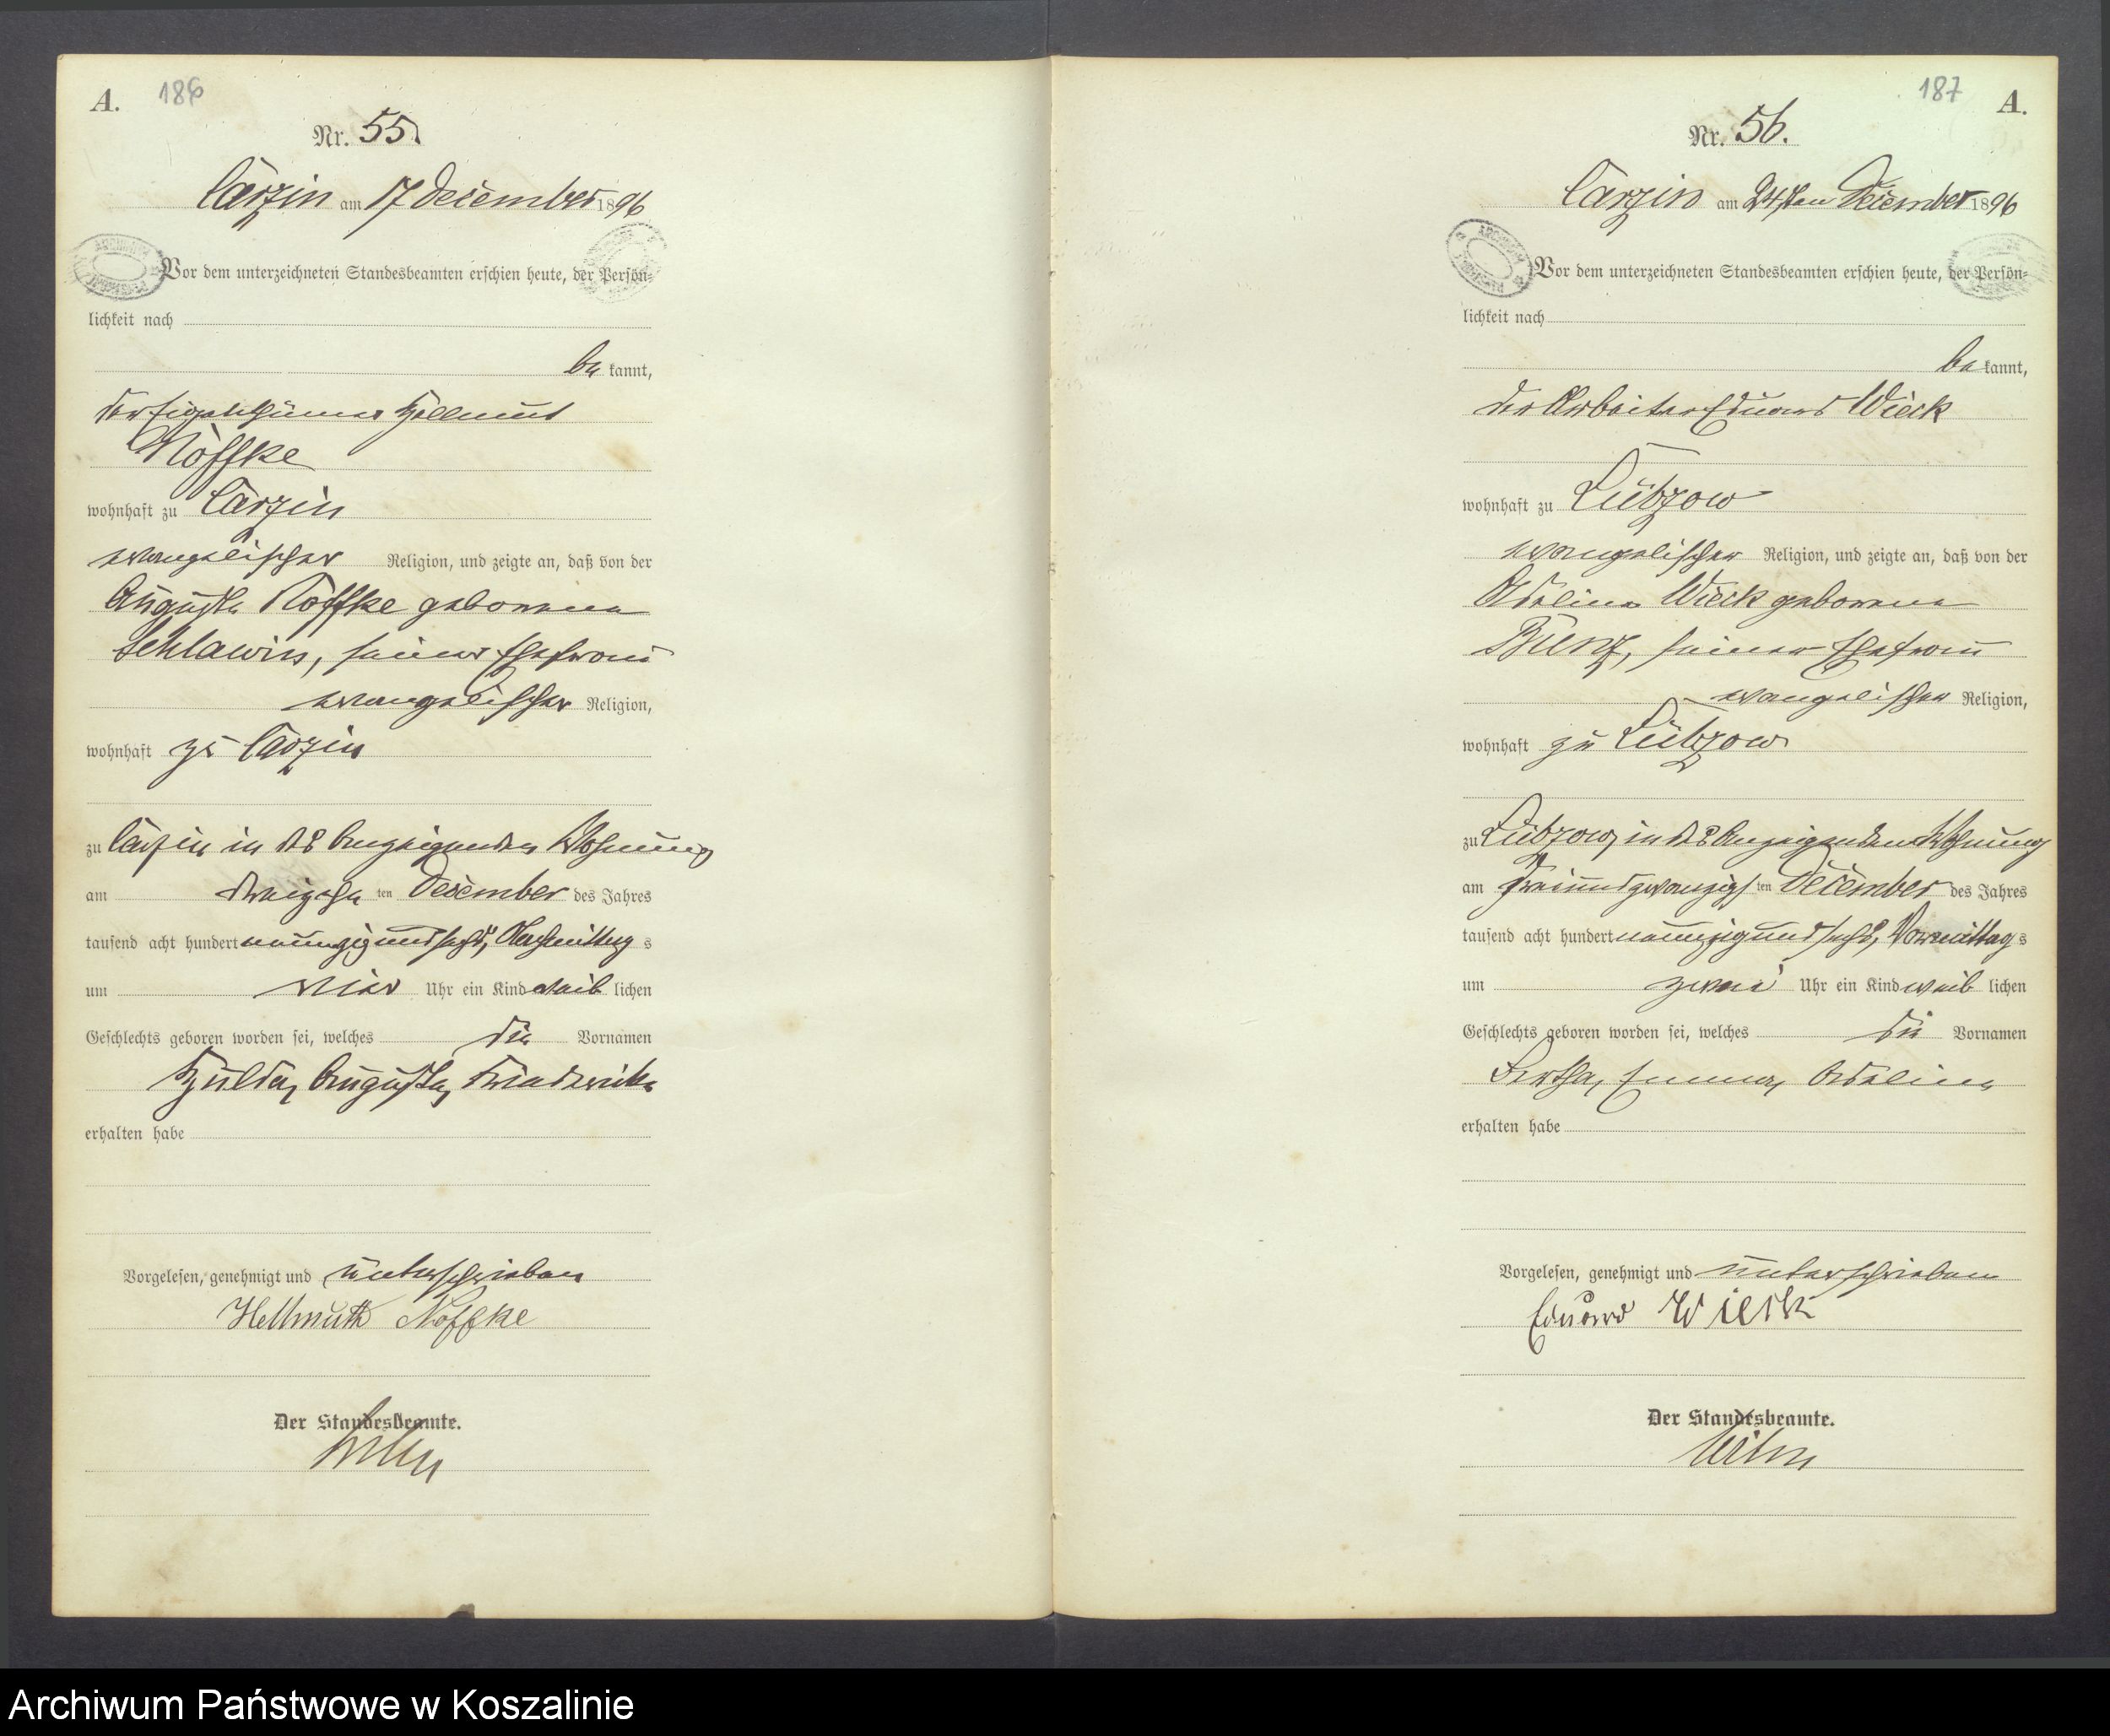 A. 186
Nr. 55.
Carzin am 17 December 1896
Vor dem unterzeichneten Standesbeamten erschien heute, der Persön-
lichkeit nach
be kannt,
der Eigenthümer Hellmut
Noffke
wohnhaft zu Carzin
evangelischer Religion, und zeigte an, daß von der
Auguste Noffke geborene
Schlawin, seiner Ehefrau
evangelischer Religion,
wohnhaft zu Carzin
zu Carzin in des Anzeigenden Wohnung
am dreizehn ten December des Jahres
tausend acht hundert neunzig und sechs, Nachmittag s
um vier Uhr ein Kind weib lichen
Geschlechts geboren worden sei, welches die Vornamen
Hulda, Auguste, Friederike
erhalten habe
Vorgelesen, genehmigt und unterschrieben
Hellmuth Noffke
Der Standesbeamte.
Wilm
187 A.
Nr. 56.
Carzin am 24ten December 1896
Vor dem unterzeichneten Standesbeamten erschien heute, der Persön-
lichkeit nach
be kannt,
der Arbeiter Eduard Wieck
wohnhaft zu Lübzow
evangelischer Religion, und zeigte an, daß von der
Adeline Wieck geborene
seiner Ehefrau
evangelischer Religion,
wohnhaft zu Lübzow
zu Lübzow, in des Anzeigenden Wohnung
am zwanzigs ten December des Jahres
tausend acht hundert neunzig und sechs, Vormittag s
um zwei Uhr ein Kind weib lichen
Geschlechts geboren worden sei, welches die Vornamen
Emma, Adeline
erhalten habe
Vorgelesen, genehmigt und unterschrieben
Eduard Wieck
Der Standesbeamte.
Wilm
Archiwum Państwowe w Koszalinie